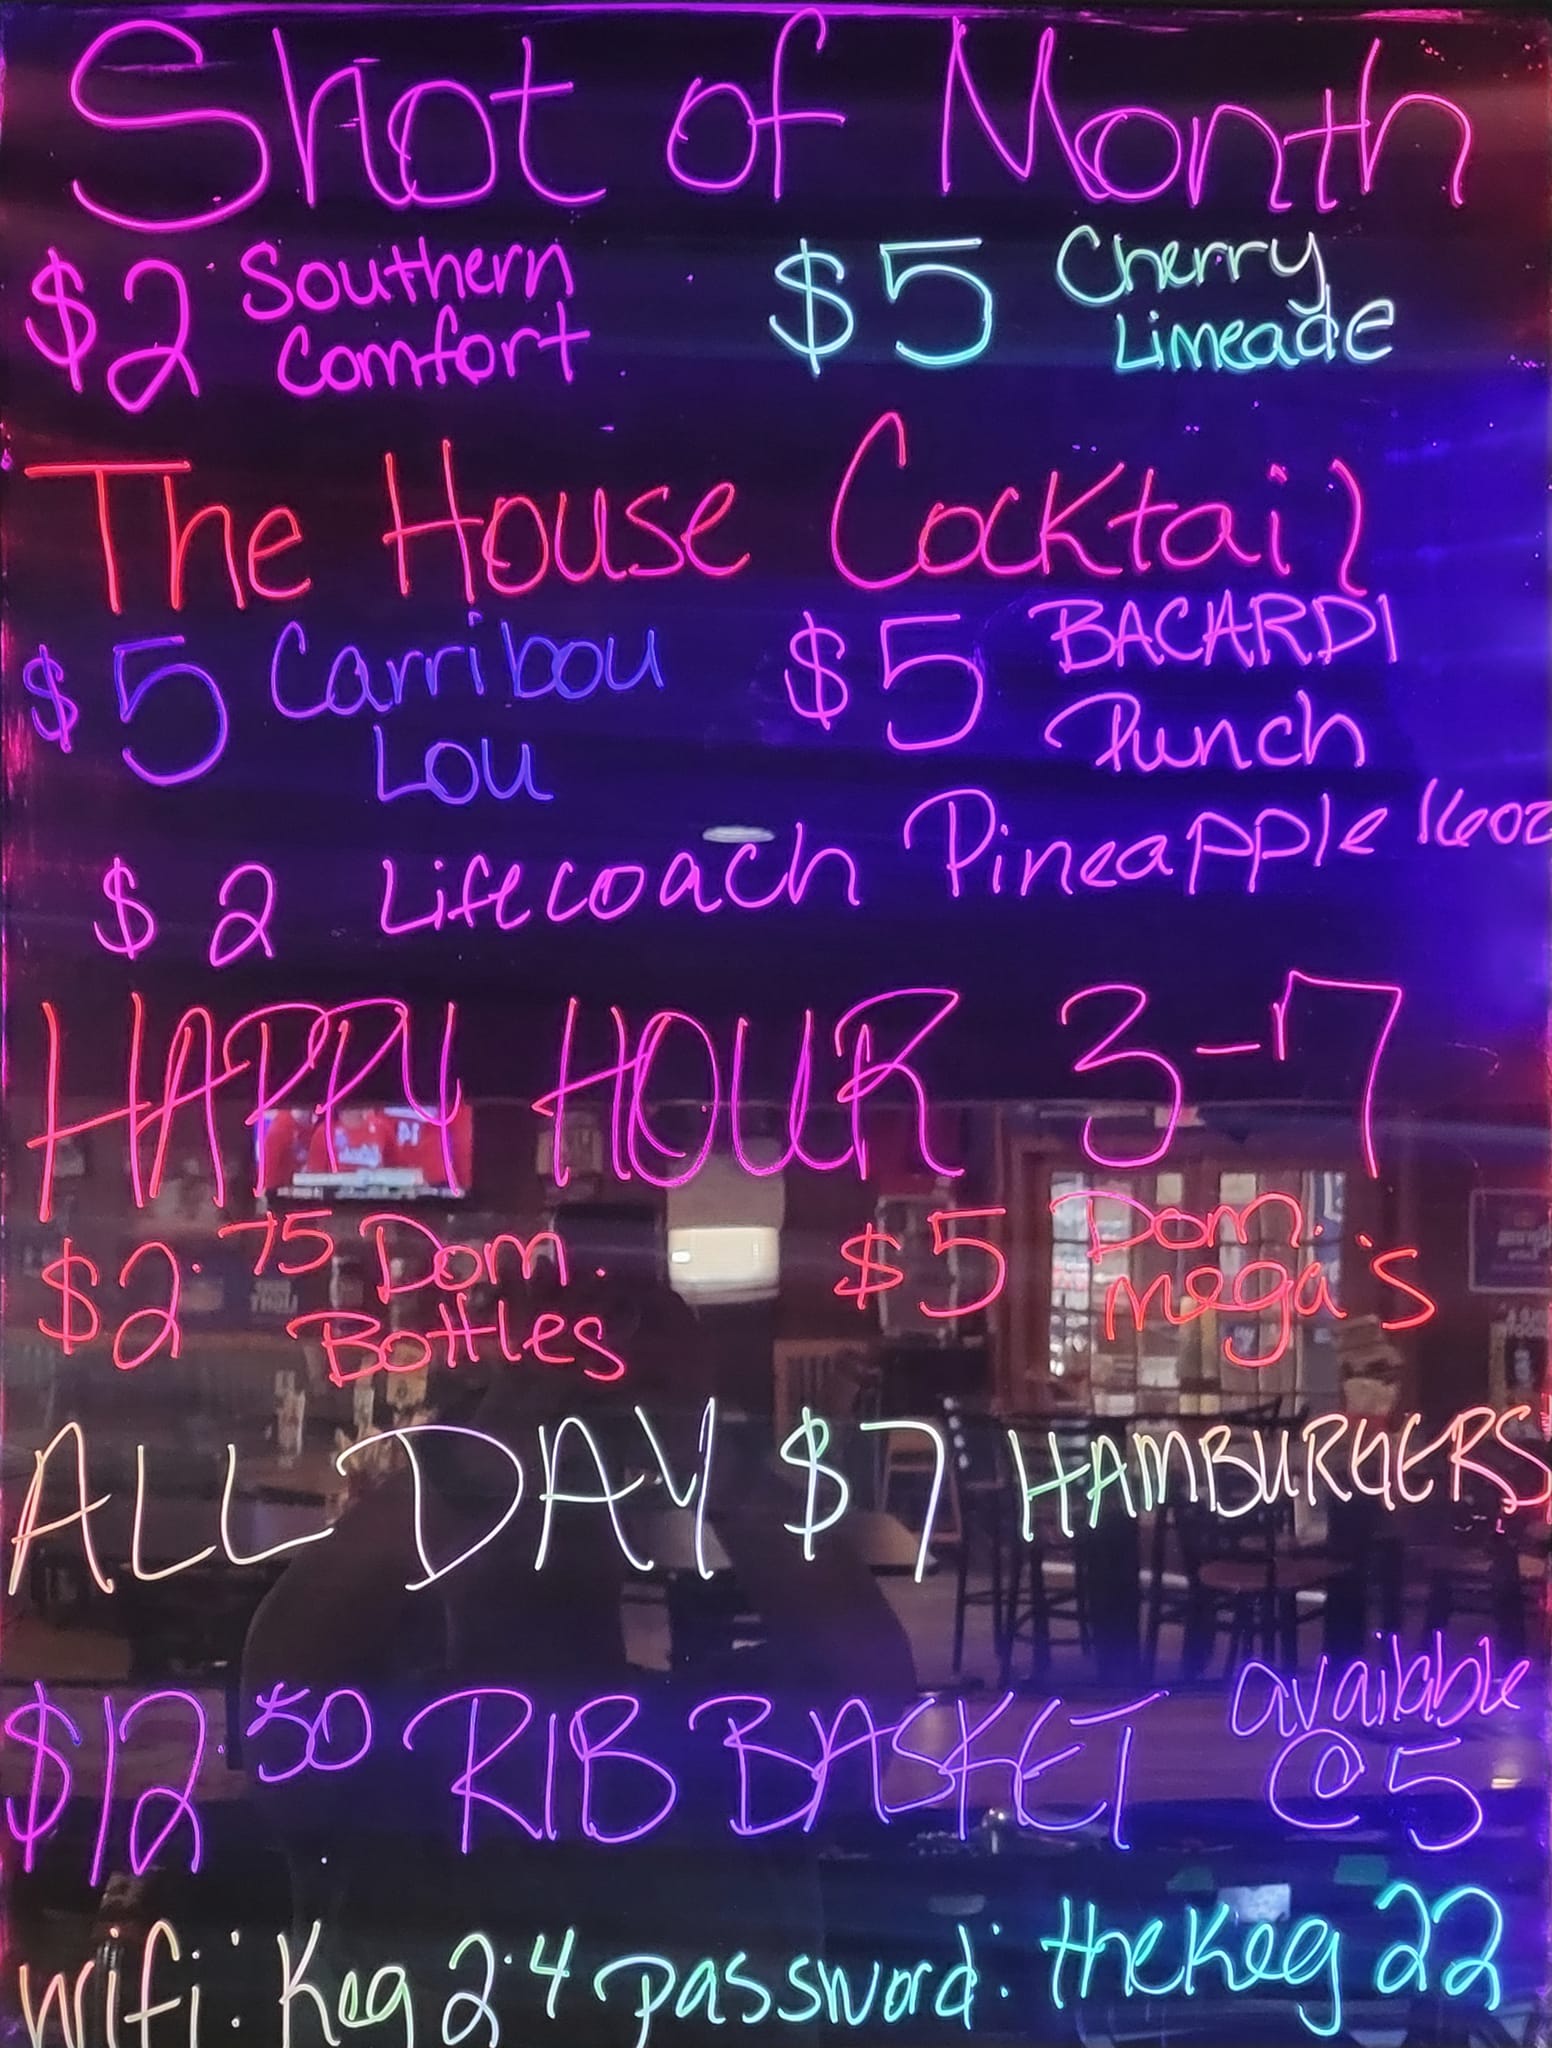 Shot of Month
$2 Southern Comfort
$5 Cherry Limeade
The House Cocktail
$5 Carribou Lou
$5 BACARDI Punch
$2 Lifecoach Pineapple 16oz
HAPPY HOUR 3-7
$2.75 Dom. Bottles
$5 Dom. mega's
ALL DAY $7 HAMBURGERS
$12.50 RIB BASKET available @5
wifi: Keg 2.4 password: thekeg22